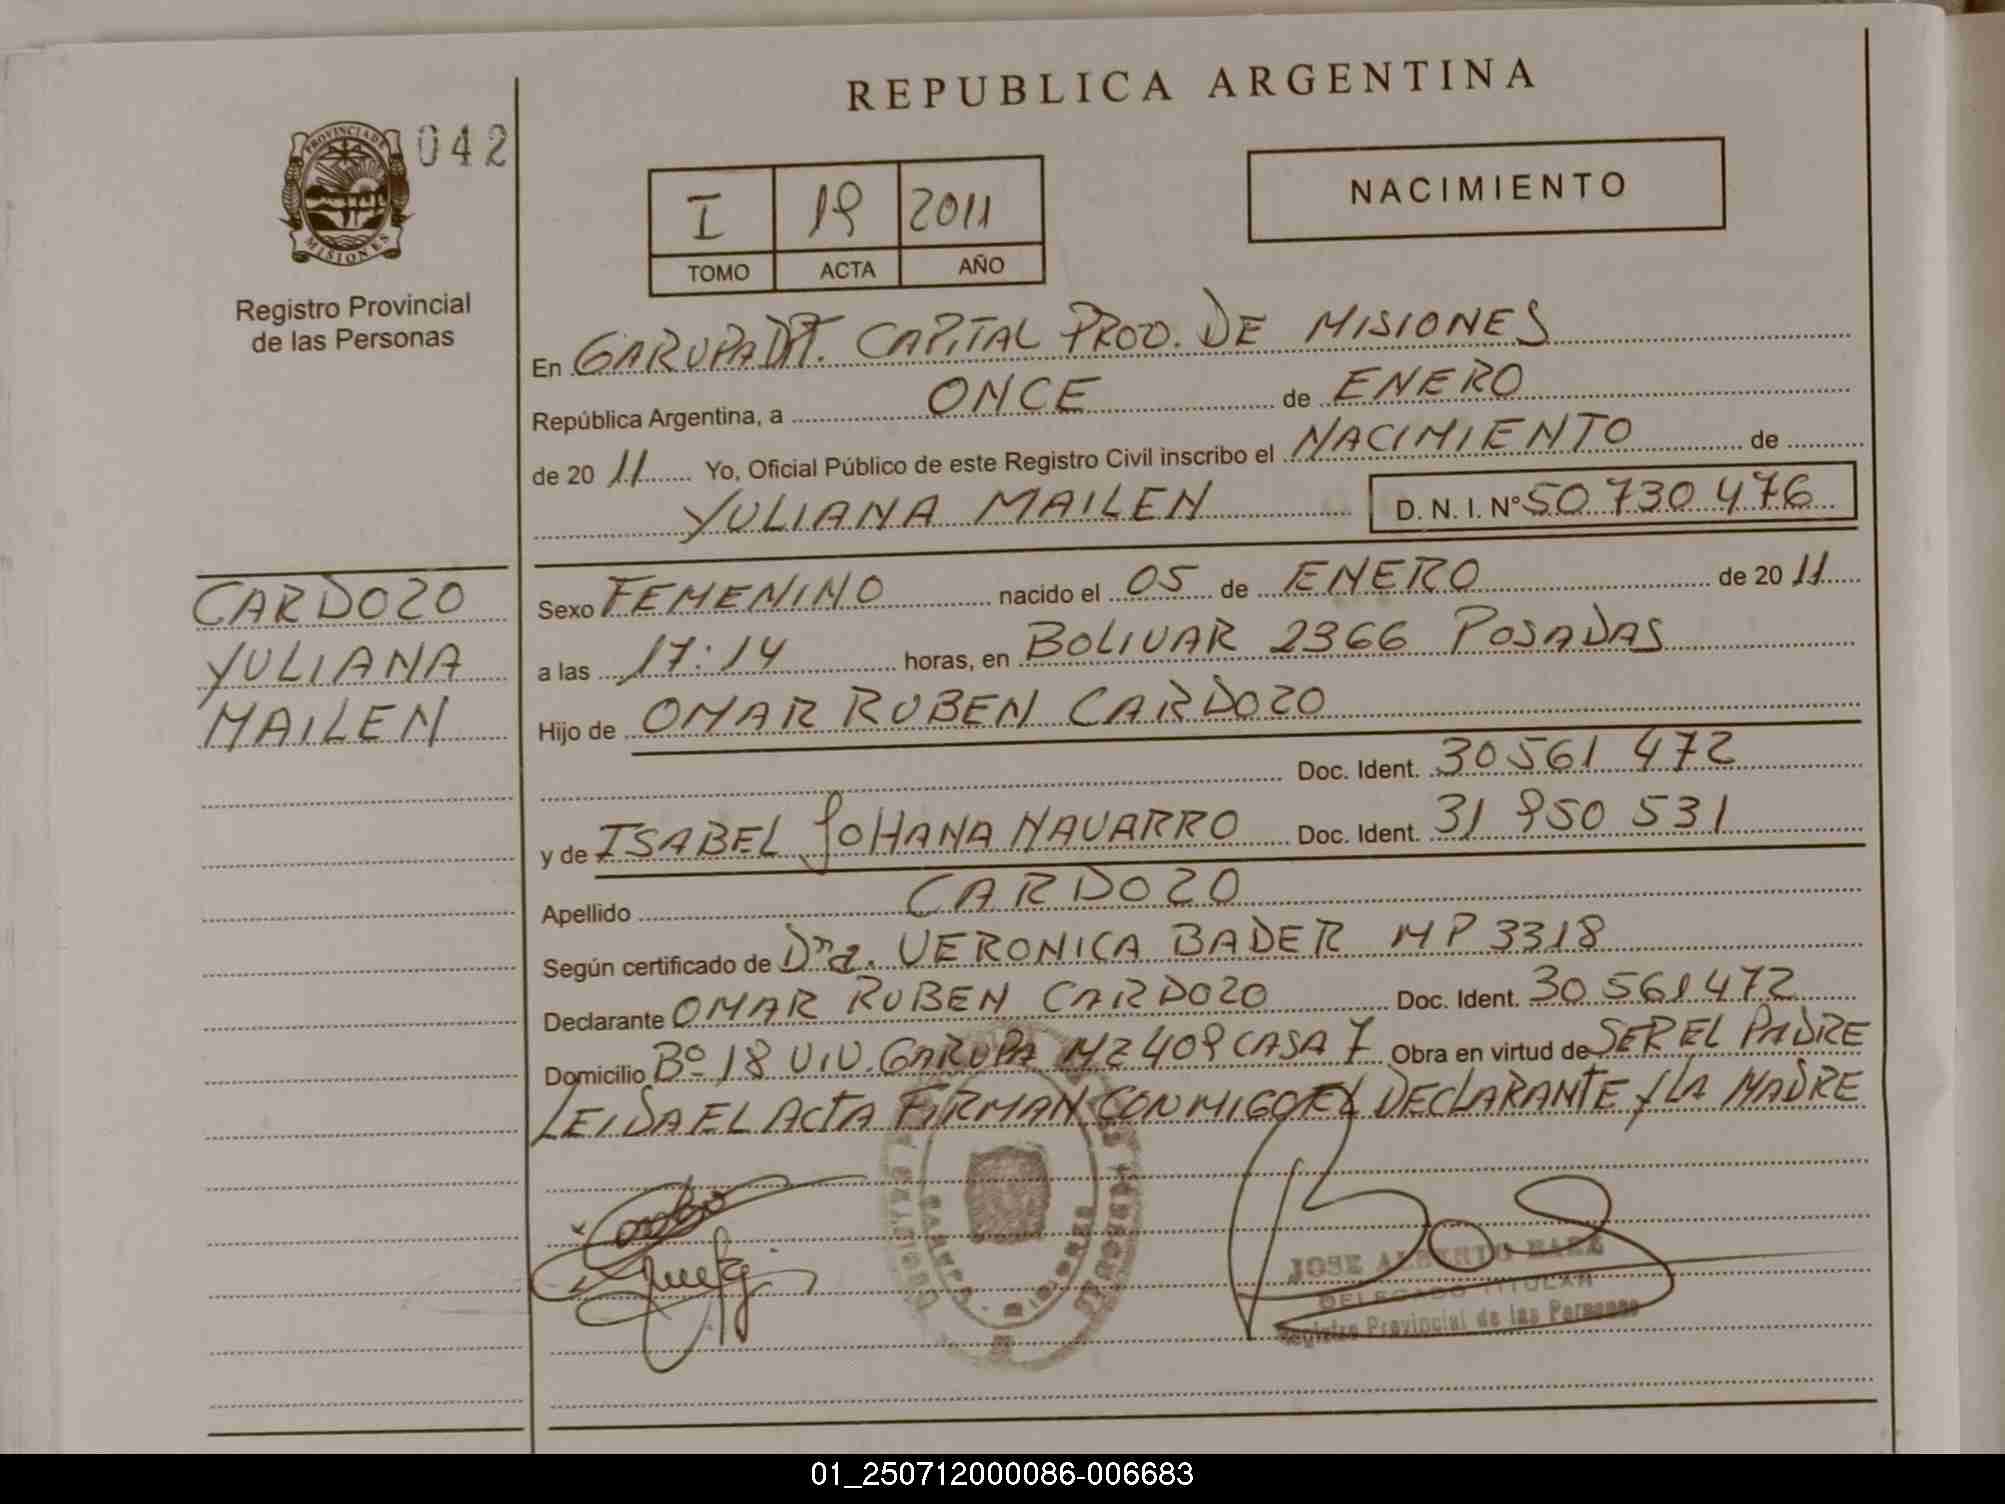 REPUBLICA ARGENTINA
PROVINCIA DE
MISIONES
042
Registro Provincial
de las Personas
I 19 2011
TOMO ACTA AÑO
NACIMIENTO
En GARUPA DPT. CAPITAL PROV. DE MISIONES
República Argentina, a ONCE de ENERO
de 20 11 Yo, Oficial Público de este Registro Civil inscribo el NACIMIENTO de
YULIANA MAILEN D. N. I. Nº 50 730 476
CARDOZO
YULIANA
MAILEN
Sexo FEMENINO nacido el 05 de ENERO de 20 11
a las 17:14 horas, en BOLIVAR 2366 POSADAS
Hijo de OMAR RUBEN CARDOZO
Doc. Ident. 30 561 472
y de ISABEL JOHANA NAVARRO Doc. Ident. 31 950 531
Apellido CARDOZO
Según certificado de Dra. VERONICA BADER MP 3318
Declarante OMAR RUBEN CARDOZO Doc. Ident. 30 561 472
Domicilio Bº 18 VIV. GARUPA MZ 409 CASA 7 Obra en virtud de SER EL PADRE
LEIDA EL ACTA FIRMAN CONMIGO EL DECLARANTE Y LA MADRE
JOSE ALBERTO BAEZ
DELEGADO TITULAR
Registro Provincial de las Personas
01_250712000086-006683